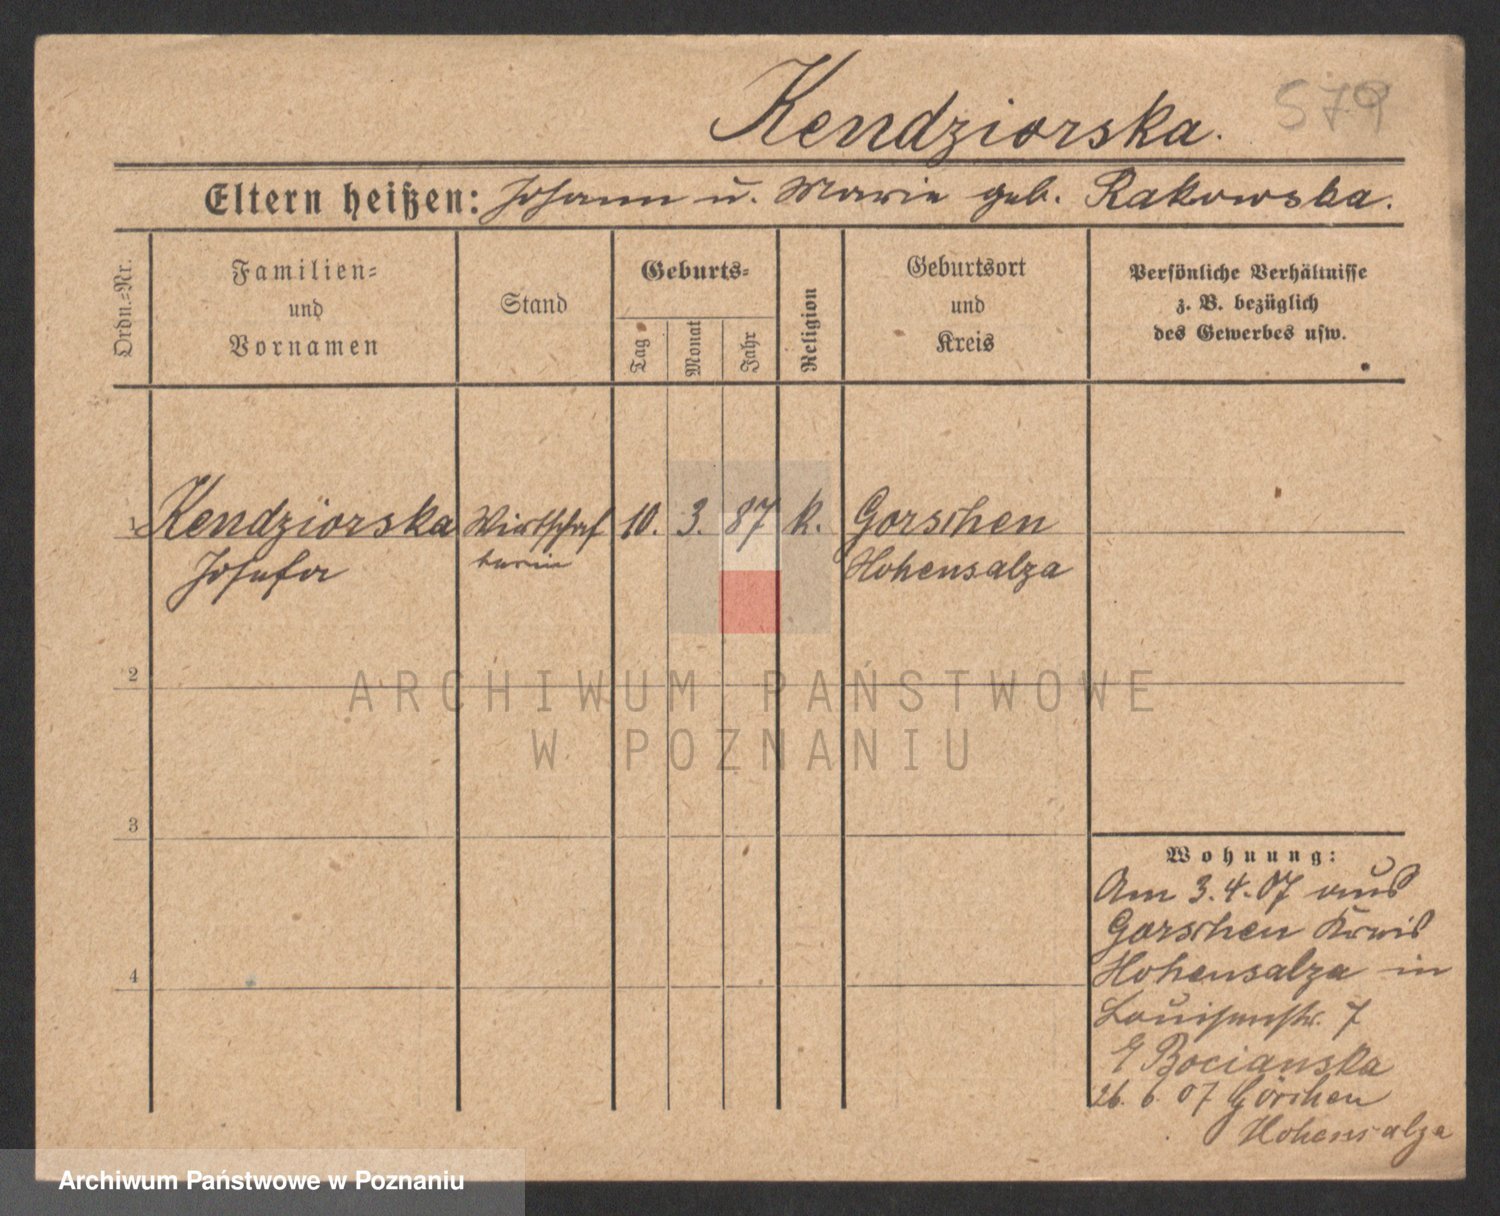 Kendziorska.
579
Eltern heißen: Johann u. Marie geb. Rakowska.
Ordn.-Nr.
Familien-
und
Vornamen
Stand
Geburts-
Tag
Monat
Jahr
Religion
Geburtsort
und
Kreis
Persönliche Verhältnisse
z. B. bezüglich
des Gewerbes usw.
1 Kendziorska Wirtschaf 10. 3. 87 k. Gorschen
Josefa terin Hohensalza
2
3
4
Wohnung:
Am 3.4.07 aus
Gorschen Kreis
Hohensalza in
Louisenstr. 7
Bocianska
26. 6. 07 Görchen
Hohensalza
ARCHIWUM PAŃSTWOWE
W POZNANIU
Archiwum Państwowe w Poznaniu